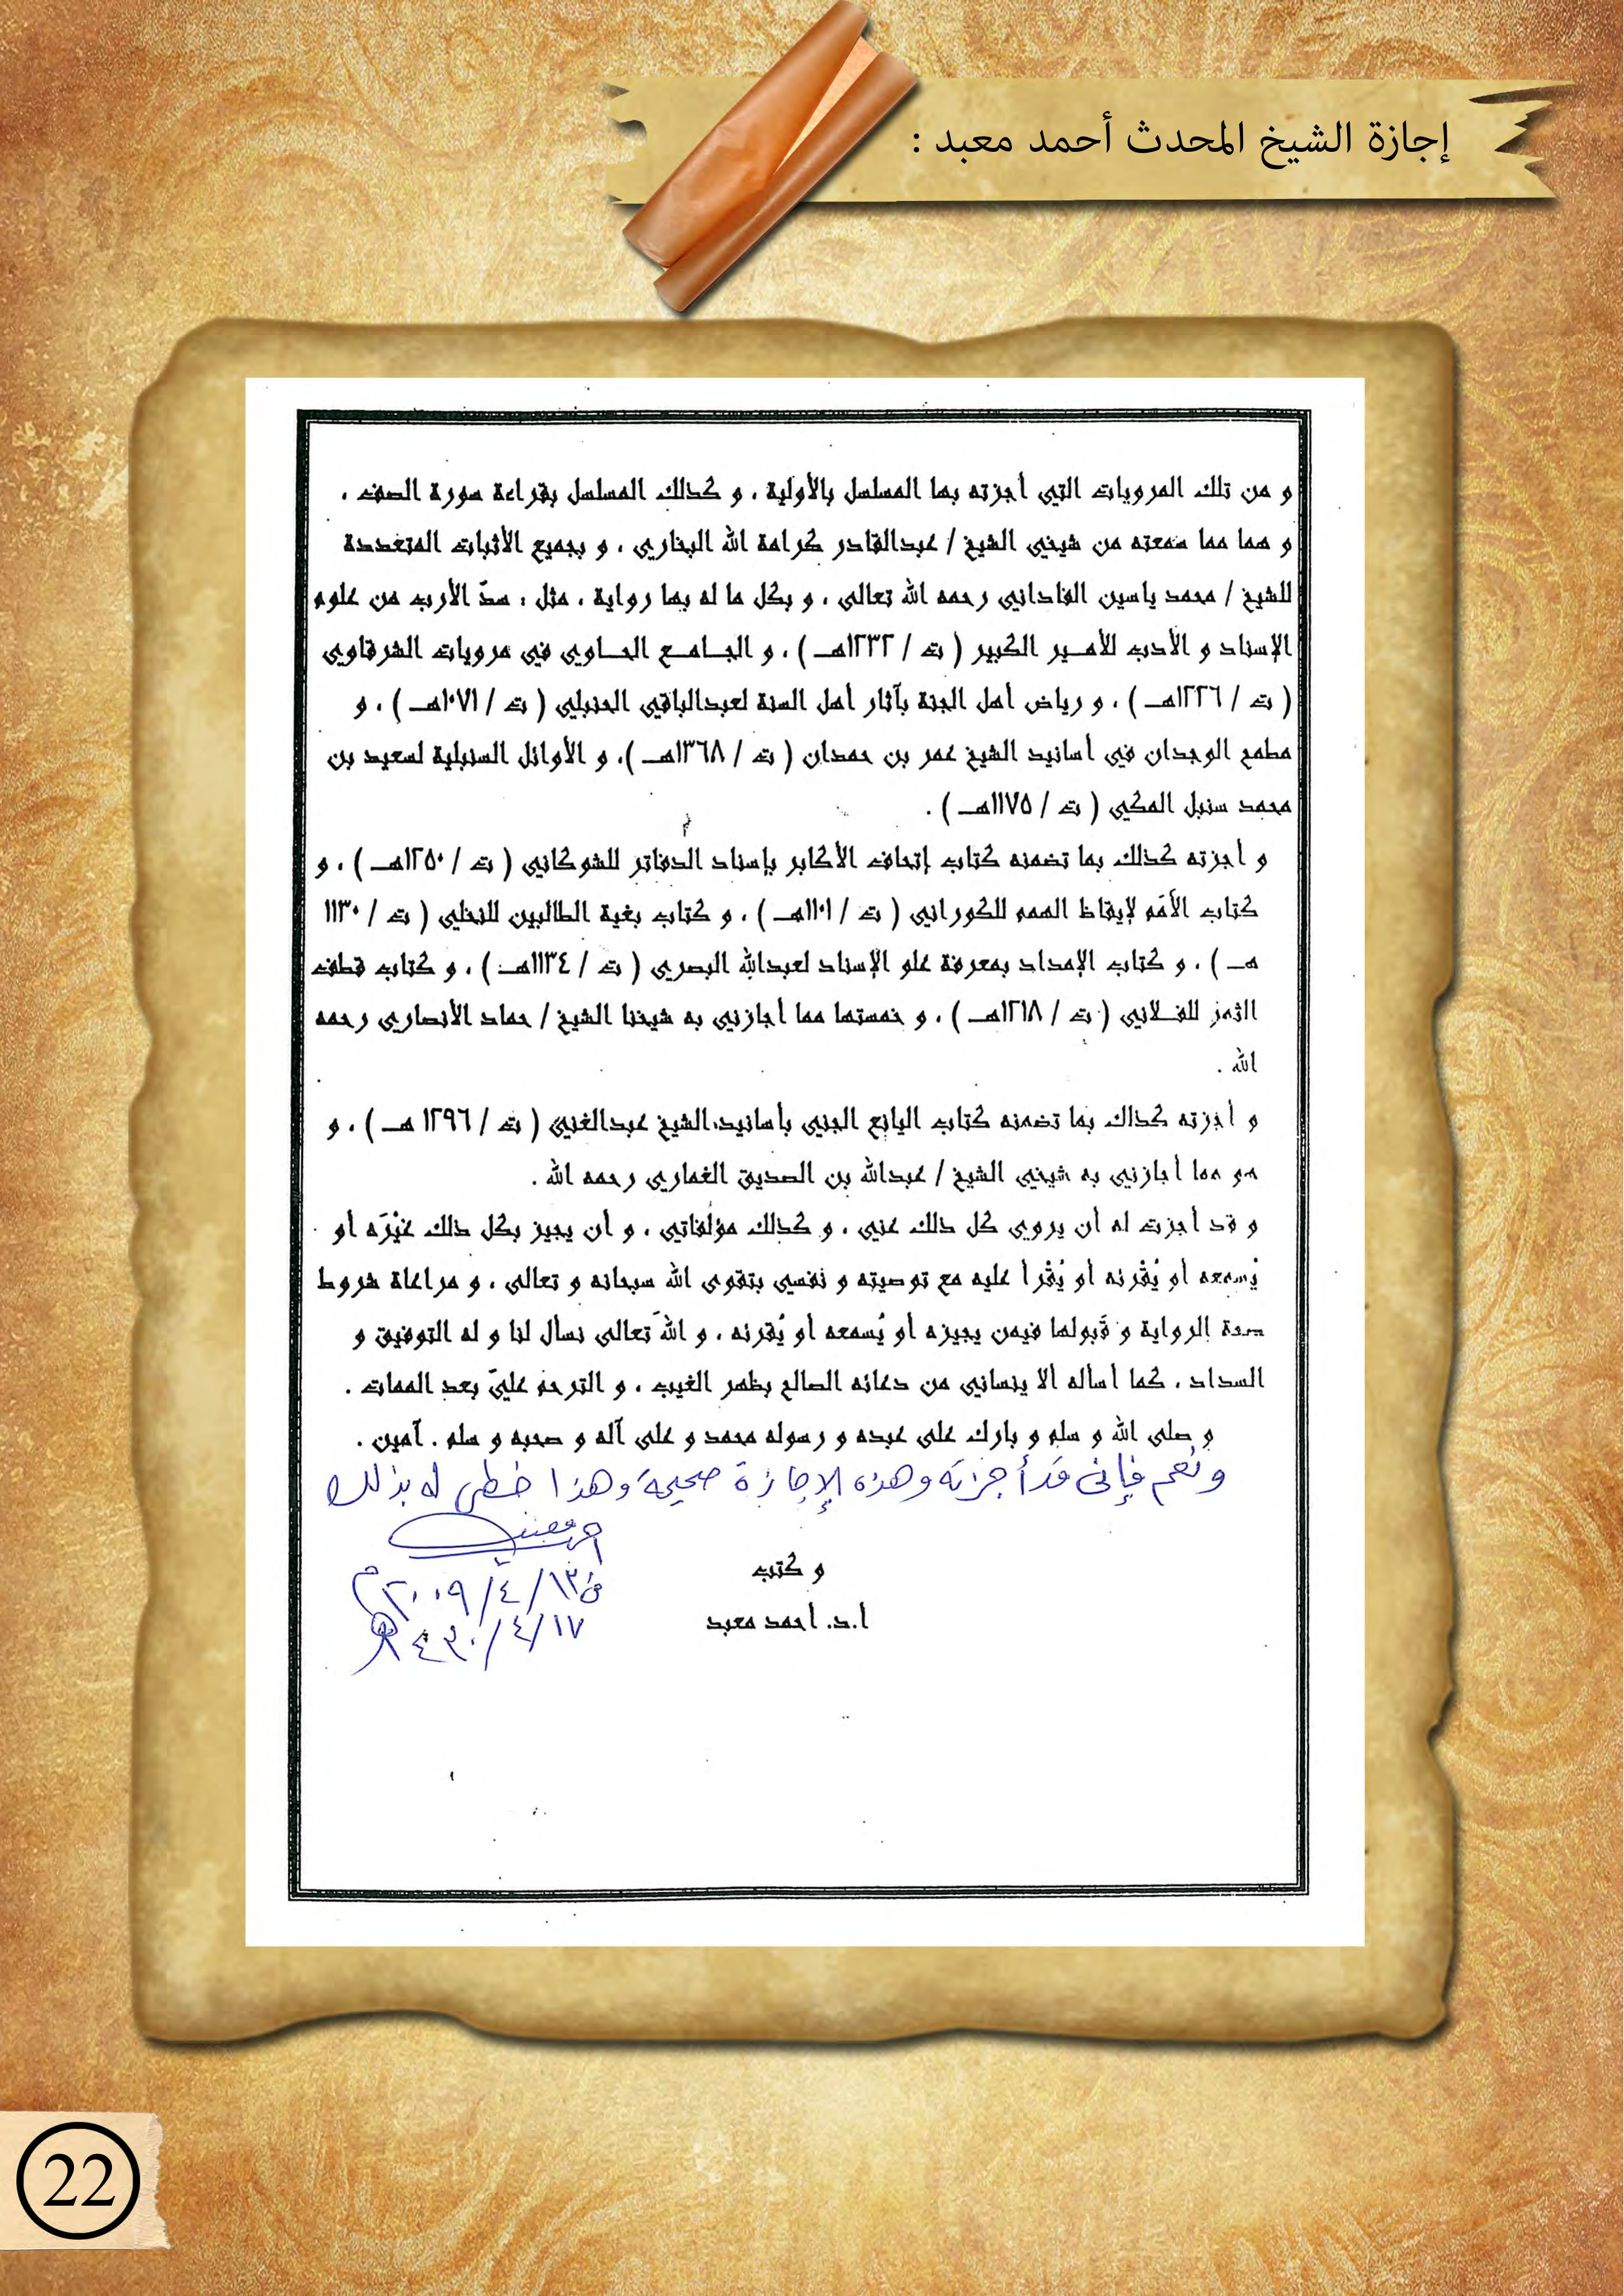 إجازة الشيخ المحدث أحمد معبد :
و من تلك المرويات التي أجزته بها المسلسل بالأولية ، و كذلك المسلسل بقراءة سورة الصف ،
و هما مما سمعته من شيخي الشيخ / عبدالقادر كرامة الله البخاري ، و بجميع الأثبات المتعددة
للشيخ / محمد ياسين الفاداني رحمه الله تعالى ، و بكل ما له بها رواية ، مثل : سدّ الأرب من علوم
الإسناد و الأدب للأمير الكبير ( ت / ١٢٣٢هـ ) ، و الجامع الحاوي في مرويات الشرقاوي
( ت / ١٢٢٦هـ ) ، و رياض أهل الجنة بآثار أهل السنة لعبدالباقي الحنبلي ( ت / ١٠٧١هـ ) ، و
مطمح الوجدان في أسانيد الشيخ عمر بن حمدان ( ت / ١٣٦٨هـ )، و الأوائل السنبلية لسعيد بن
محمد سنبل المكي ( ت / ١١٧٥هـ ) .
و أجزته كذلك بما تضمنه كتاب إتحاف الأكابر بإسناد الدفاتر للشوكاني ( ت / ١٢٥٠هـ ) ، و
كتاب الأمَم لإيقاظ الهمم للكوراني ( ت / ١١٠١هـ ) ، و كتاب بغية الطالبين للنخلي ( ت / ١١٣٠
هـ ) ، و كتاب الإمداد بمعرفة علو الإسناد لعبدالله البصري ( ت / ١١٣٤هـ ) ، و كتاب قطف
الثمر للفلاني ( ت / ١٢١٨هـ ) ، و خمستها مما أجازني به شيخنا الشيخ / حماد الأنصاري رحمه
الله .
و أجزته كذلك بما تضمنه كتاب اليانع الجني بأسانيد الشيخ عبدالغني ( ت / ١٢٩٦ هـ ) ، و
هو مما أجازني به شيخي الشيخ / عبدالله بن الصديق الغماري رحمه الله .
و قد أجزت له أن يروي كل ذلك عني ، و كذلك مؤلفاتي ، و أن يجيز بكل ذلك غيْرَه أو
يُسمعه أو يُقْرئه أو يُقْرأ عليه مع توصيته و نفسي بتقوى الله سبحانه و تعالى ، و مراعاة شروط
صحة الرواية و قَبولها فيمن يجيزه أو يُسمعه أو يُقرئه ، و اللهَ تعالى نسأل لنا و له التوفيق و
السداد ، كما أسأله ألا ينساني من دعائه الصالح بظهر الغيب ، و الترحم عليّ بعد الممات .
و صلى الله و سلم و بارك على عبده و رسوله محمد و على آله و صحبه و سلم . آمين .
ونعم فإنى قد أجزته وهذه الإجازة صحيحة وهذا خطى له بذلك
أحمد معبد
و كتب
فى ١٣/٤/٢٠٠٩م
أ.د. أحمد معبد
١٧/٤/١٤٣٠هـ
22